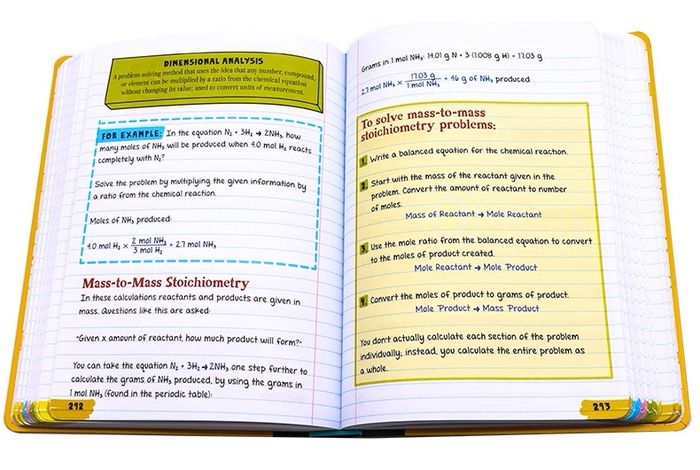 DIMENSIONAL ANALYSIS
A problem-solving method that uses the idea that any number, compound,
or element can be multiplied by a ratio from the chemical equation
without changing its value; used to convert units of measurement.
FOR EXAMPLE: In the equation N₂ + 3H₂ → 2NH₃, how
many moles of NH₃ will be produced when 4.0 mol H₂ reacts
completely with N₂?
Solve the problem by multiplying the given information by
a ratio from the chemical reaction.
Moles of NH₃ produced:
4.0 mol H₂ × 2 mol NH₃ / 3 mol H₂ = 2.7 mol NH₃
Mass-to-Mass Stoichiometry
In these calculations reactants and products are given in
mass. Questions like this are asked:
"Given x amount of reactant, how much product will form?"
You can take the equation N₂ + 3H₂ → 2NH₃ one step further to
calculate the grams of NH₃ produced, by using the grams in
1 mol NH₃ (found in the periodic table):
292
Grams in 1 mol NH₃: 14.01 g N + 3 (1.008 g H) = 17.03 g
2.7 mol NH₃ × 17.03 g / 1 mol NH₃ = 46 g of NH₃ produced
To solve mass-to-mass
stoichiometry problems:
1. Write a balanced equation for the chemical reaction.
2. Start with the mass of the reactant given in the
problem. Convert the amount of reactant to number
of moles.
Mass of Reactant → Mole Reactant
3. Use the mole ratio from the balanced equation to convert
to the moles of product created.
Mole Reactant → Mole Product
4. Convert the moles of product to grams of product.
Mole Product → Mass Product
You don't actually calculate each section of the problem
individually; instead, you calculate the entire problem as
a whole.
293